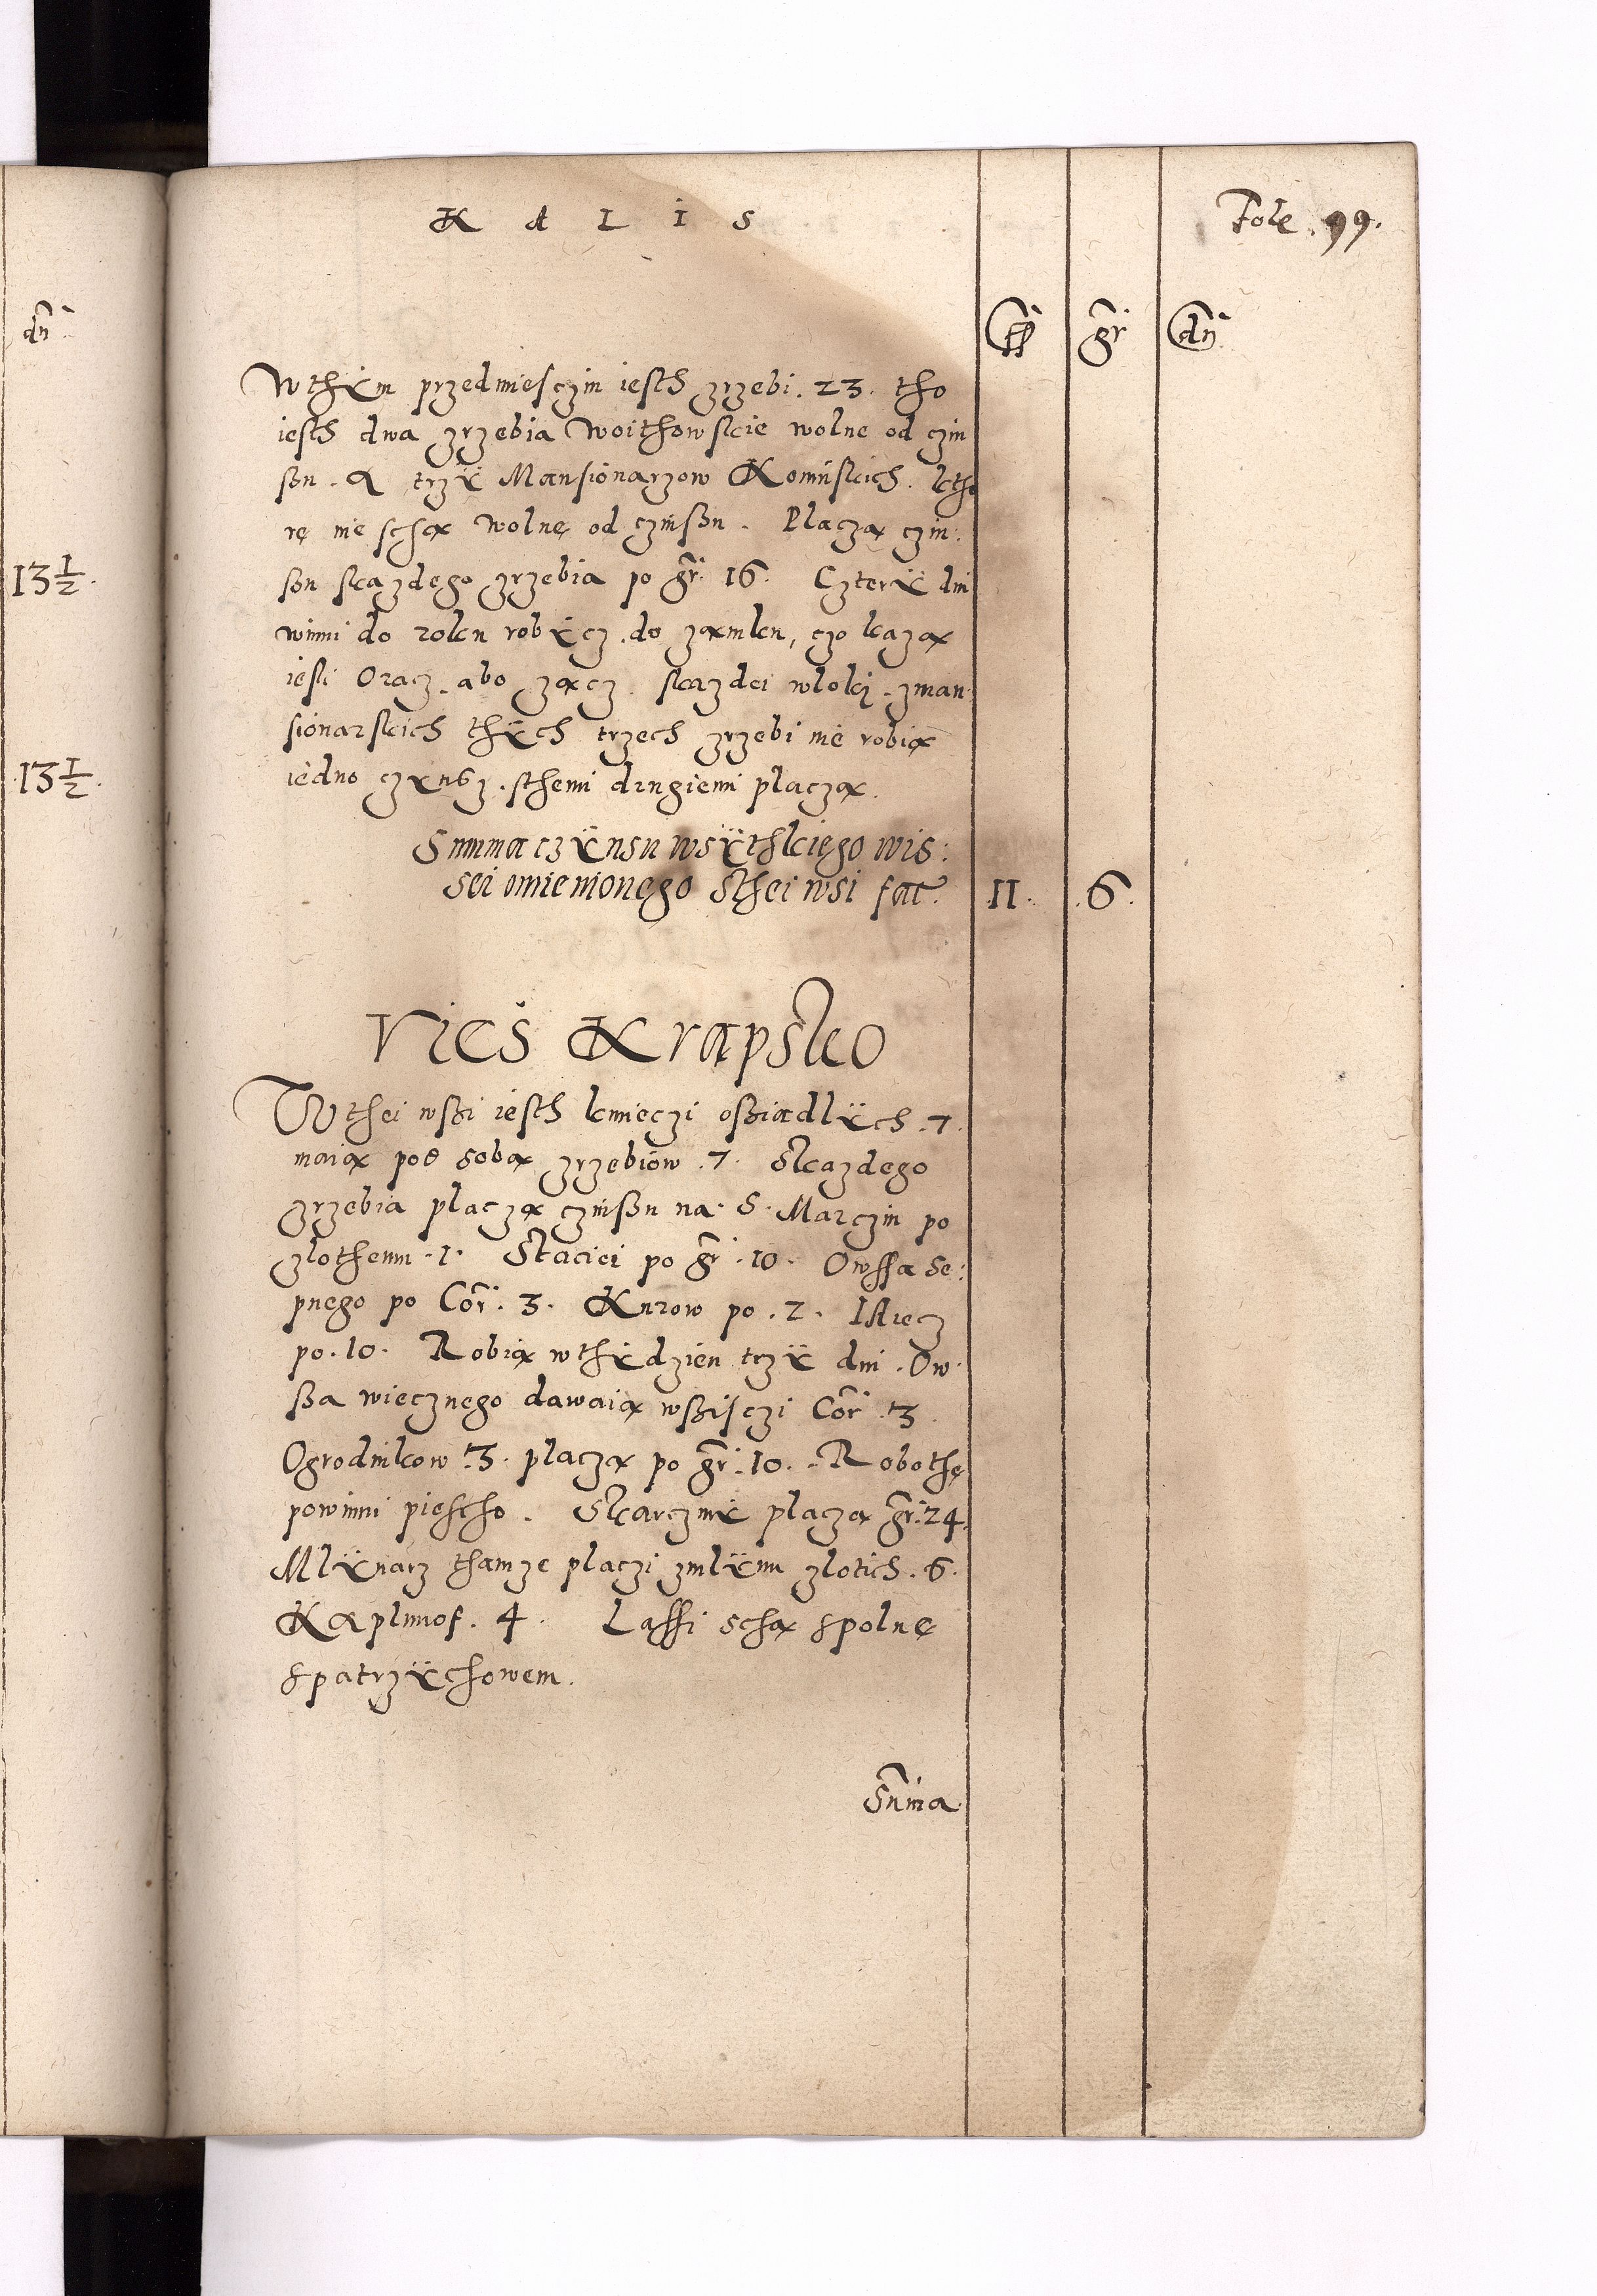 K A L I S
Fole. 99.
dn̄
fl gr dn̄
W thÿm przedmiesczin iesth zrzebi. 23. tho
iesth dwa zrzebia Woithowskie wolne od czin
su. A trzÿ Mansionarzow Koninskich. ktho
rę nie schą wolnę od czinszu. Placzą czin:
su skazdego zrzebia po gr. 16. Czterÿ dni
winni do rolku robÿcz. do zamku, czo kazą
iesli Oracz. abo zącz. skazdei wloki. zman
sionarskich thÿch trzech zrzebi nie robią
iedno czÿnsz. sthemi drugiemi placzą.
13 1/2.
13 1/2.
Summa czÿnsu wsÿthkięgo wis:
sei omienionego sthei wsi fat. 11. 6.
Vieś Krapsko
W thei wszi iesth kmieczi osziadlÿch. 7.
maią pod sobą zrzebiow. 7. Skazdego
zrzebia placzą czinszu na. S. Marczin po
zlothemu. 1. Staciei po gr. 10. Owssa Se:
pnego po Cor. 3. Kurow po. 2. IAiecz
po. 10. Robią w thÿdzien trzÿ dni. Ow
sza wiecznego dawaią wszisczi Cor. 3.
Ogrodnikow. 3. placzą po gr. 10. Robothę
powinni piescho. Skarczmÿ placzą gr. 24.
Mlÿnarz thamze placzi zmlÿnu zlotich. 6.
Kaplunof. 4. Lassi schą spolnę
spatrzÿchowem.
Summa